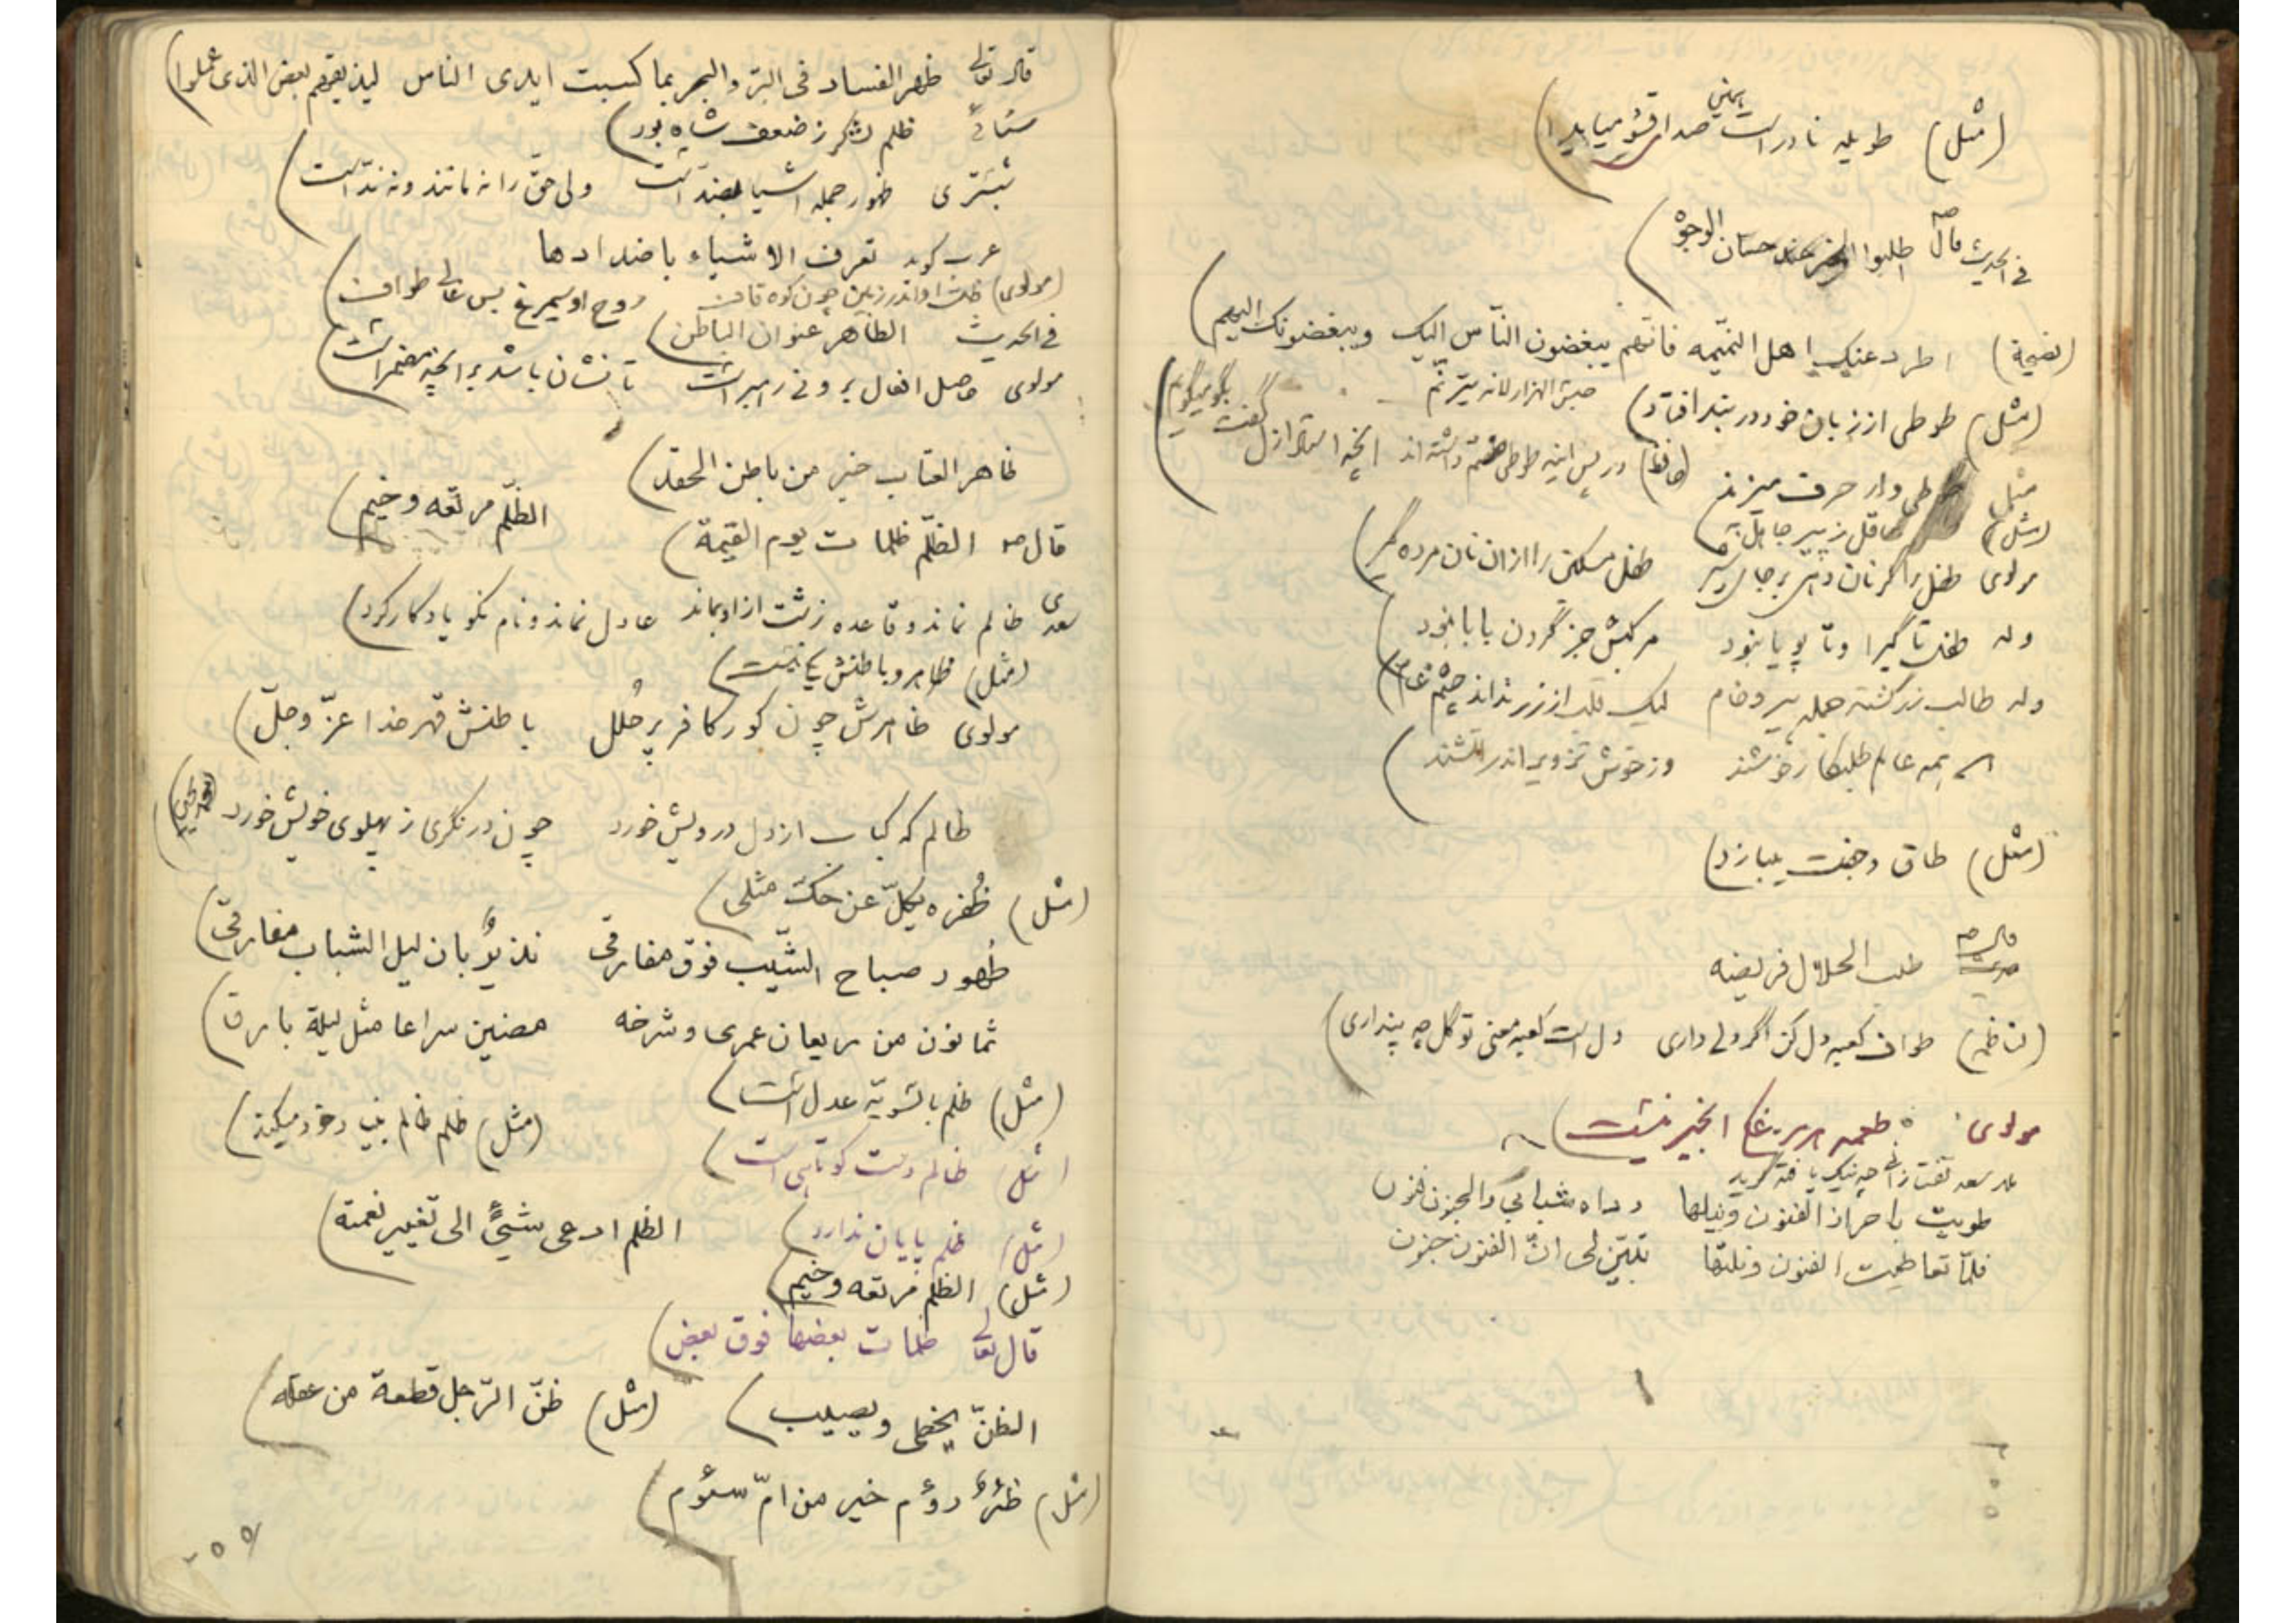 (مثل) طویله نادر است صدا
فی الحدیث قال ص اطلبوا الخیر عند حسان الوجوه
(نصیحة) اطرد عنک اهل النمّیمه فانّهم یبغضون النّاس الیک ویبغضونک الیهم
(مثل) طوطی از زبان خود در بند افتاد
مثل طوطی وار حرف میزند (حافظ) در پس اینه طوطی صفتم داشته اند انچه استاد ازل گفت بگو میگویم
(مثل) عاقل ز پیر جاهل به
مولوی طفل را گر نان دهی بر جای شیر طفل مسکین را از ان نان مرده گیر
وله طفل تا گیرا و تا پویا نبود مرکبش جز گردن بابا نبود
وله طالب زر گشته جمله پیر و خام لیک قلب از زر نداند چشم عام
همه عالم طلبکار خوشند وز خوش تزویر اندر آتشند
(مثل) طاق و جفت یبازد
قال ص
حدیث طلب الحلال فریضه
(ناظم) طواف کعبه دل کن اگر دلی داری دل است کعبه معنی تو گل چه پنداری
مولوی طعمه هر مرغکی انجیر نیست
سعد تفتازانی چه نیک یافته گوید
طویت باحراز الفنون ونیلها رداء شبابی والجنون فنون
فلمّا تعاطیت الفنون ونلتها تبیّن لی انّ الفنون جنون
قال تعالی ظهر الفساد فی البرّ والبحر بما کسبت ایدی الناس لیذیقهم بعض الذی عملوا
سنائی ظلم لشکر ز ضعف شاه بود
شبستری ظهور جمله اشیا بضدّ است ولی حقّ را نه مانند و نه ندّ است
عرب گوید تعرف الاشیاء باضدادها
(مولوی) ظلّ او اندر زمین چون کوه قاف روح او سیمرغ بس عالی طواف
فی الحدیث الظاهر عنوان الباطن
مولوی حاصل افعال برونی رهبر است تا نشان باشد بر انچه مضمر است
ظاهر العتاب خیر من باطن الحقد
الظّلم مرتعه وخیم
قال ص الظّلم ظلمات یوم القیمة
سعدی ظالم نماند و قاعده زشت از او بماند عادل نماند و نام نکو یادگار کرد
(مثل) ظاهر و باطنش یکیست
مولوی ظاهرش چون گور کافر پر حُلل باطنش قهر خدا عزّ وجلّ
ظالم که کباب از دل درویش خورد چون درنگری ز پهلوی خویش خورد
(مثل) ظُفره یکلّ عن حکّ مثلی
ظُهور صباح الشّیب فوق مفارقی نذیرٌ بان لیل الشباب مفارقی
ثمانون من ریعان عمری وشرخه مضین سراعا مثل لیلة بارق
(مثل) ظلم بالسّویّه عدل است
(مثل) ظلم ظالم بنیاد خود میکند
(مثل) ظالم دست کوتاهی است
(مثل) ظلم پایان ندارد
الظلم ادعی شیئٍ الی تغییر نعمة
(مثل) الظلم مرتعه وخیم
قال تعالی ظلمات بعضها فوق بعض
الظنّ یخطی ویصیب
(مثل) ظنّ الرّجل قطعة من عقله
(مثل) ظئرٌ رؤم خیر من امّ سؤم